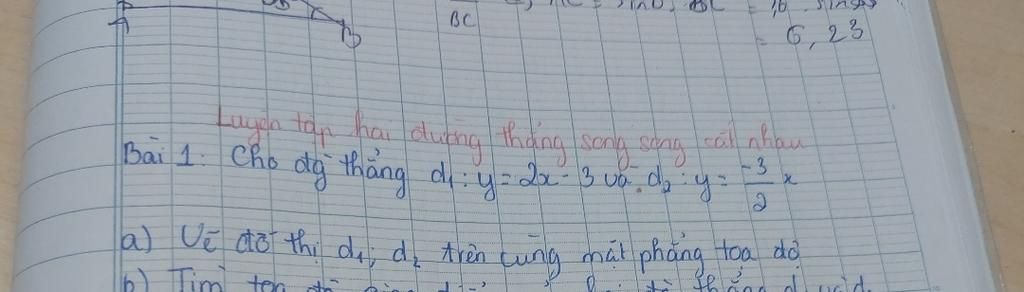 BC
= 6,23
Luyện tập hai đường thẳng song song cắt nhau
Bài 1: Cho đg thẳng d₁: y = 2x - 3 và d₂: y = -3/2 x
a) Vẽ đồ thị d₁; d₂ trên cùng mặt phẳng toạ độ
b) Tìm